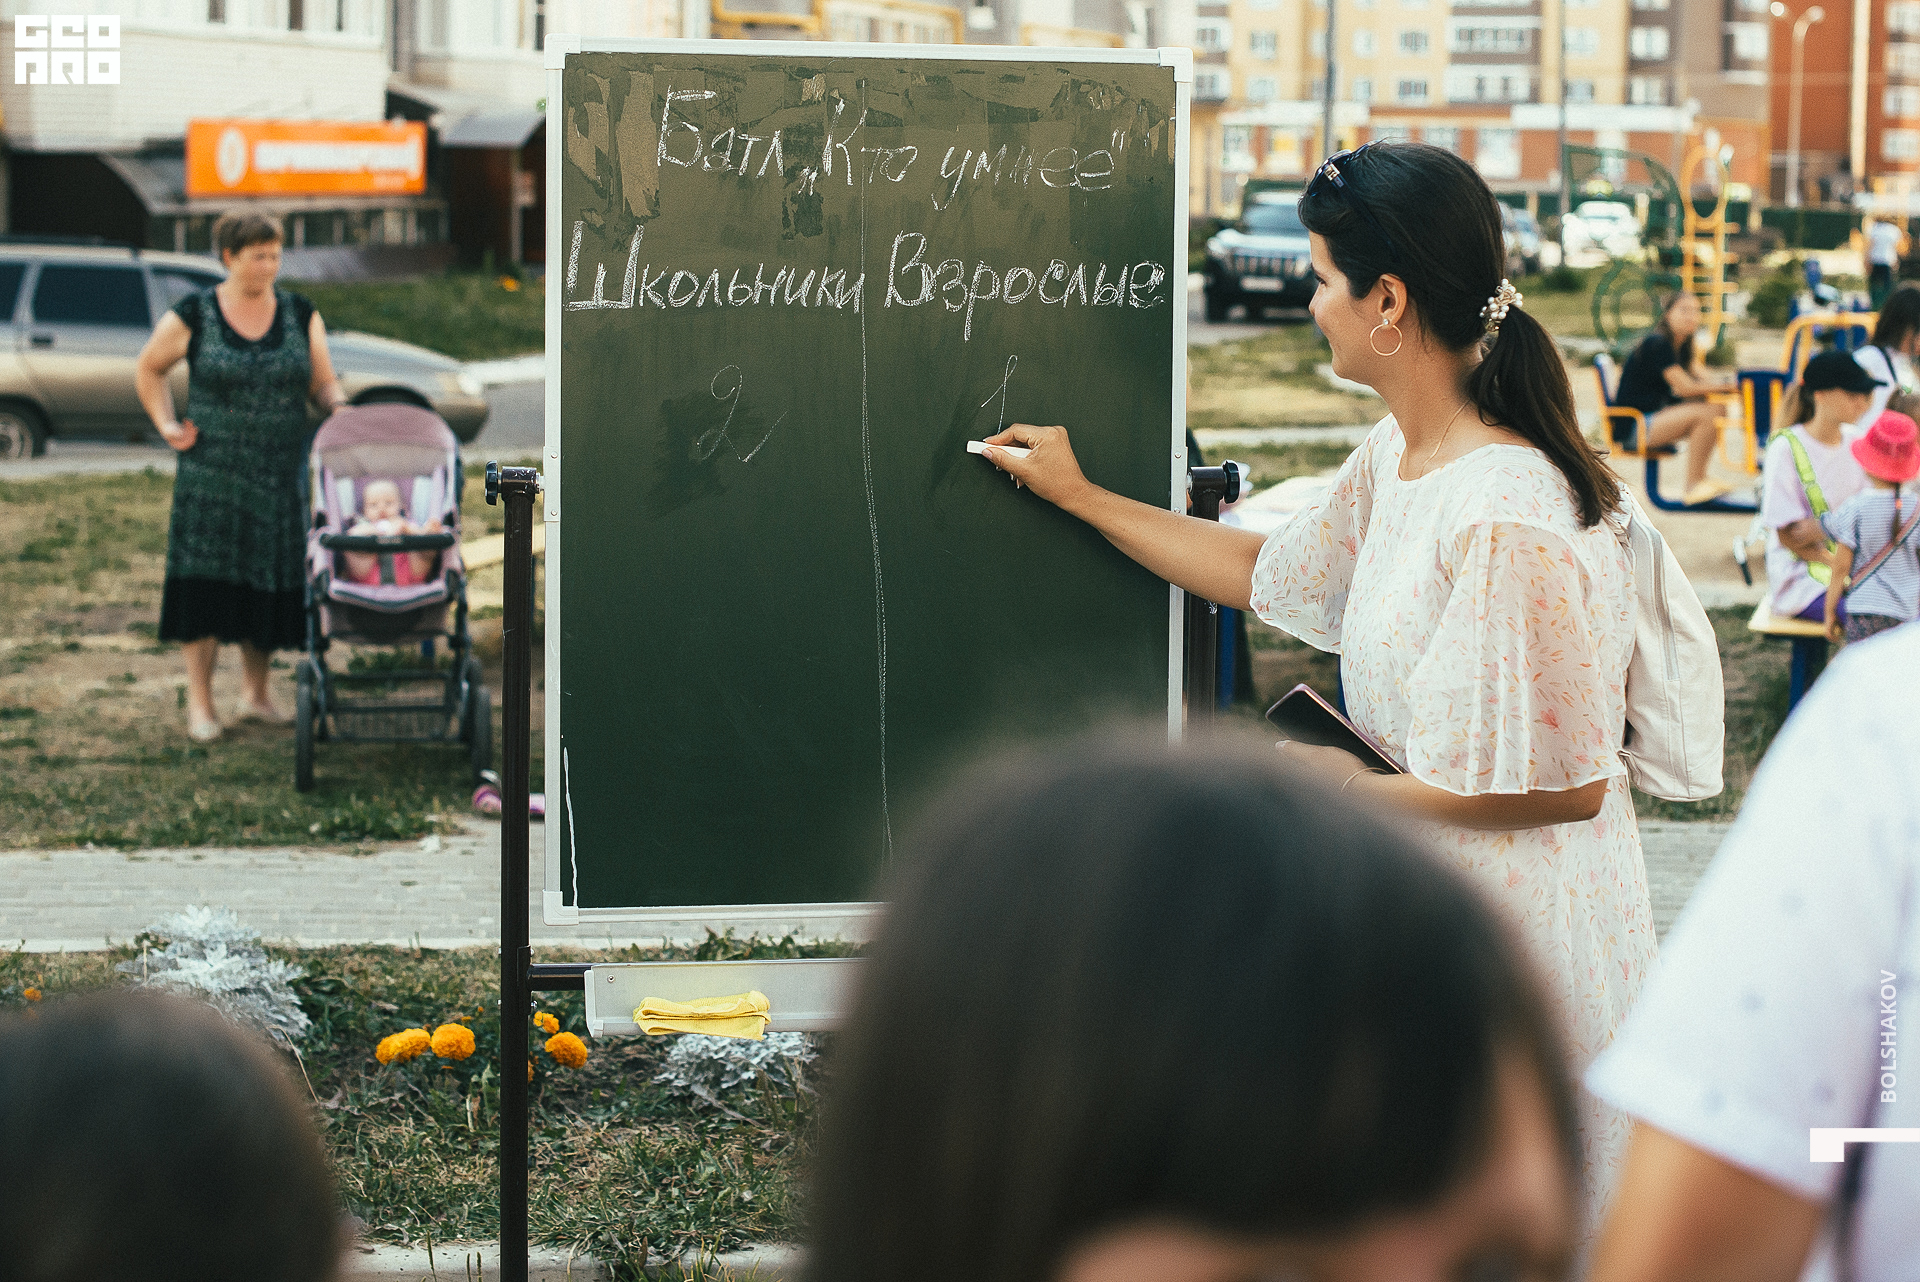 GEO
PRO
Батл „Кто умнее"
Школьники Взрослые
2 1
BOLSHAKOV